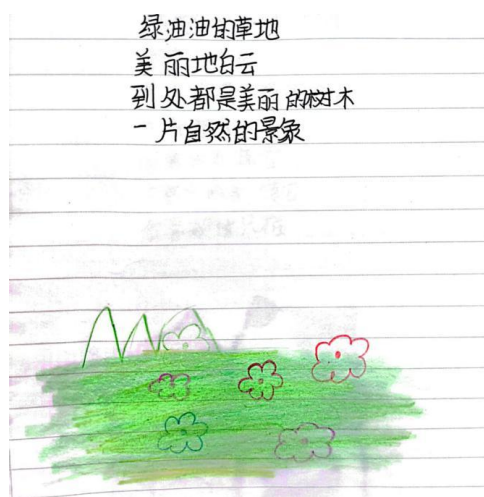 绿油油的草地
美丽地白云
到处都是美丽的树木
一片自然的景象